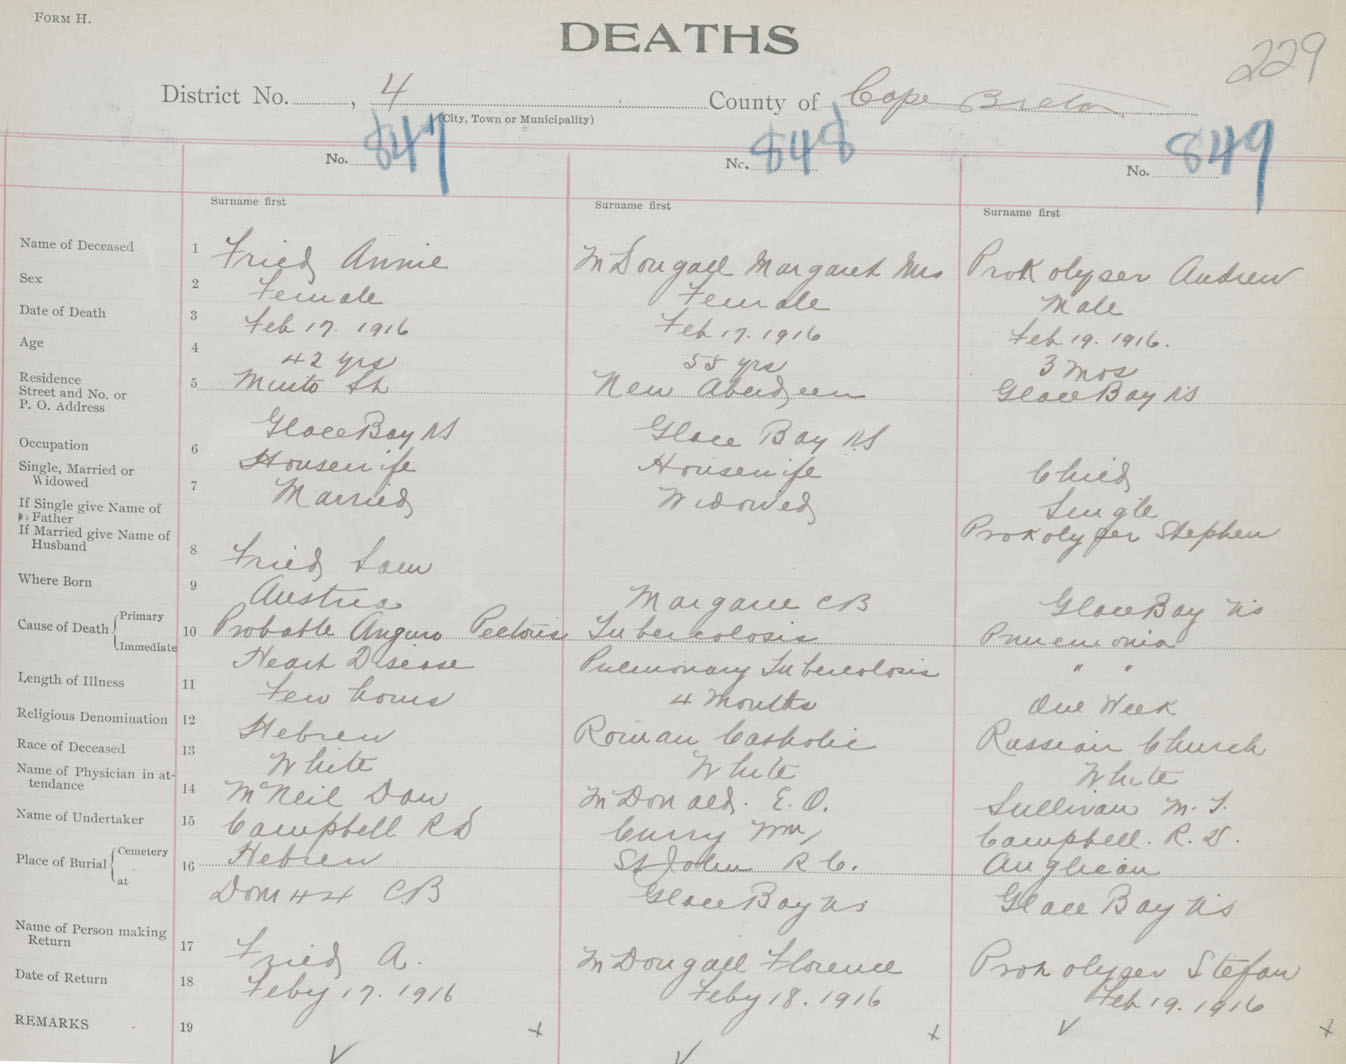 FORM H.
DEATHS
229
District No. , 4 County of Cape Breton
(City, Town or Municipality)
No. 847 No. 848 No. 849
Surname first Surname first Surname first
Name of Deceased 1 Fried Annie McDougall Margaret Mrs Prokolyser Andrew
Sex 2 Female Female Male
Date of Death 3 Feb 17. 1916 Feb 17. 1916 Feb 19. 1916.
Age 4 42 yrs 55 yrs 3 mos
Residence
Street and No. or 5 Minto St New Aberdeen Glace Bay NS
P. O. Address
Glace Bay NS Glace Bay NS
Occupation 6 Housewife Housewife Child
Single, Married or
Widowed 7 Married Widowed Single
If Single give Name of
Father
If Married give Name of Prokolyser Stephen
Husband 8 Fried Sam
Where Born 9 Austria Margaree CB Glace Bay NS
Cause of Death Primary 10 Probable Angina Pectoris Tuberculosis Pneumonia
Immediate Heart Disease Pulmonary Tuberculosis " "
Length of Illness 11 Few hours 4 Months One Week
Religious Denomination 12 Hebrew Roman Catholic Russian Church
Race of Deceased 13 White White White
Name of Physician in at-
tendance 14 McNeil Dan McDonald. E. O. Sullivan M. T.
Name of Undertaker 15 Campbell R D Curry Wm, Campbell. R. D.
Place of Burial Cemetery 16 Hebrew St John R C. Anglican
at Dom #4 CB Glace Bay NS Glace Bay NS
Name of Person making
Return 17 Fried A. McDougall Florence Prokolyser Stefan
Date of Return 18 Feby 17. 1916 Feby 18. 1916 Feb 19. 1916
REMARKS 19